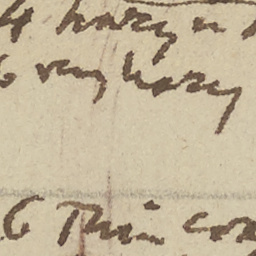 4 hazy n
6 very hazy
6 Thin